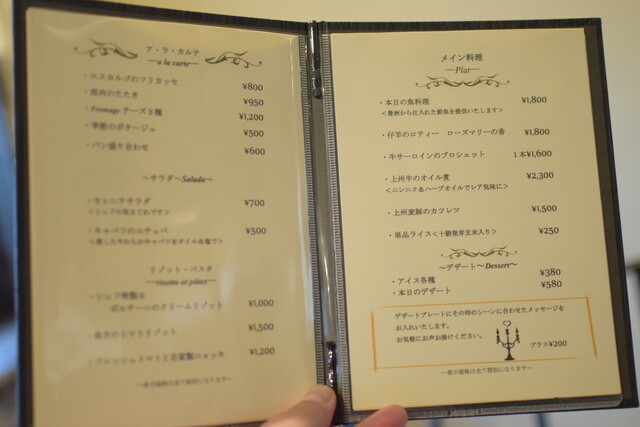 ア・ラ・カルテ
—a la carte—
・エスカルゴのフリカッセ ¥800
・馬肉のたたき ¥950
・Fromage チーズ3種 ¥1,200
・季節のポタージュ ¥500
・パン盛り合わせ ¥600
～サラダ～Salada～
・セレニテサラダ ¥700
<シェフの気まぐれです>
・キャベツのエチュベ ¥500
<蒸したやわらかキャベツをオイル&塩で>
リゾット・パスタ
—risotto et pâtes—
・シェフ特製☆
ポルチーニのクリームリゾット ¥1,000
・魚介のトマトリゾット ¥1,500
・フレッシュトマトと自家製ニョッキ ¥1,200
—表示価格は全て税別になります—
メイン料理
—Plat—
・本日の魚料理 ¥1,800
<豊洲から仕入れた鮮魚を提供いたします>
・仔羊のロティー ローズマリーの香 ¥1,800
・牛サーロインのブロシェット 1本¥1,600
・上州牛のオイル煮 ¥2,300
<ニンニク&ハーブオイルでレア気味に>
・上州麦豚のカツレツ ¥1,500
・単品ライス<十穀発芽玄米入り> ¥250
～デザート～Dessert～
・アイス各種 ¥380
・本日のデザート ¥580
デザートプレートにその時のシーンに合わせたメッセージを
お入れいたします。
お気軽にお声お掛けください。
プラス¥200
—表示価格は全て税別になります—